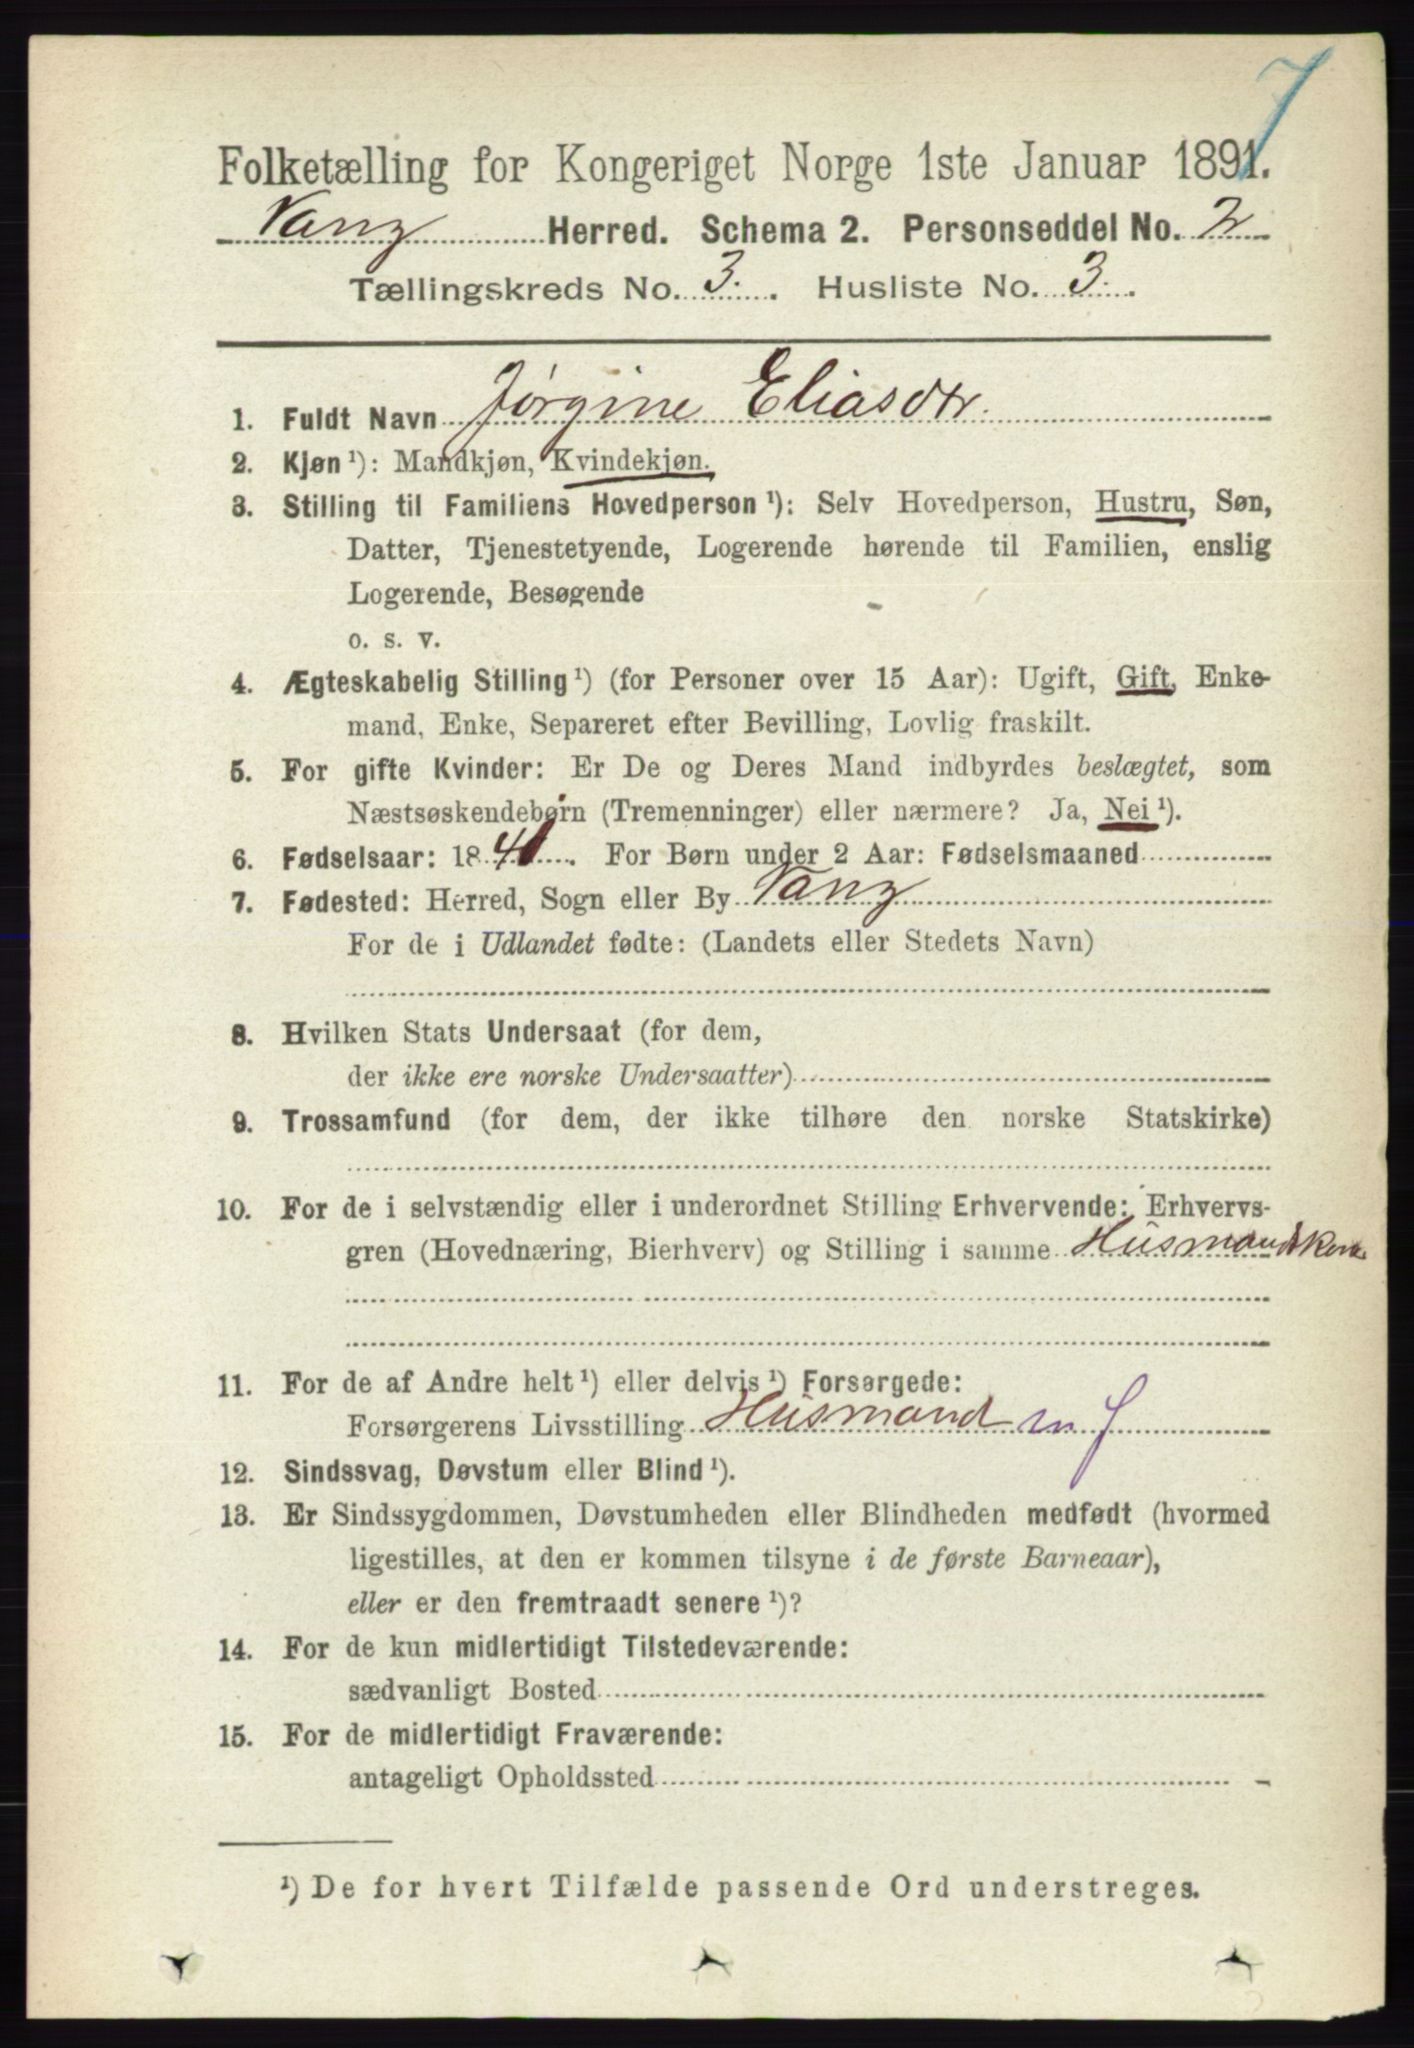 7
Folketælling for Kongeriget Norge 1ste Januar 1891.
Vang Herred. Schema 2. Personseddel No. 2
Tællingskreds No. 3. Husliste No. 3.
1. Fuldt Navn Jørgine Eliasdtr.
2. Kjøn ¹): Mandkjøn, Kvindekjøn.
3. Stilling til Familiens Hovedperson ¹): Selv Hovedperson, Hustru, Søn,
Datter, Tjenestetyende, Logerende hørende til Familien, enslig
Logerende, Besøgende
o. s. v.
4. Ægteskabelig Stilling ¹) (for Personer over 15 Aar): Ugift, Gift, Enke-
mand, Enke, Separeret efter Bevilling, Lovlig fraskilt.
5. For gifte Kvinder: Er De og Deres Mand indbyrdes beslægtet, som
Næstsøskendebørn (Tremenninger) eller nærmere? Ja, Nei ¹).
6. Fødselsaar: 1841. For Børn under 2 Aar: Fødselsmaaned
7. Fødested: Herred, Sogn eller By Vang
For de i Udlandet fødte: (Landets eller Stedets Navn)
8. Hvilken Stats Undersaat (for dem,
der ikke ere norske Undersaatter)
9. Trossamfund (for dem, der ikke tilhøre den norske Statskirke)
10. For de i selvstændig eller i underordnet Stilling Erhvervende: Erhvervs-
gren (Hovednæring, Bierhverv) og Stilling i samme Husmandskone
11. For de af Andre helt ¹) eller delvis ¹) Forsørgede:
Forsørgerens Livsstilling Husmand m J
12. Sindssvag, Døvstum eller Blind ¹).
13. Er Sindssygdommen, Døvstumheden eller Blindheden medfødt (hvormed
ligestilles, at den er kommen tilsyne i de første Barneaar),
eller er den fremtraadt senere ¹)?
14. For de kun midlertidigt Tilstedeværende:
sædvanligt Bosted
15. For de midlertidigt Fraværende:
antageligt Opholdssted
¹) De for hvert Tilfælde passende Ord understreges.